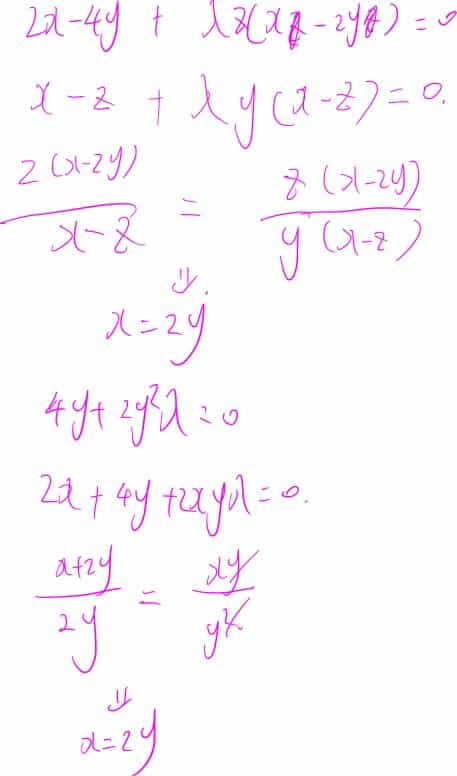 2x-4y + λz(x-2y) = 0
x-z + λy(x-z) = 0.
2(x-2y) / x-z = z(x-2y) / y(x-z)
⇓.
x=2y
4y+2y²λ=0
2x+4y+2xyλ=0.
x+2y / 2y = xy / y²
⇓
x=2y